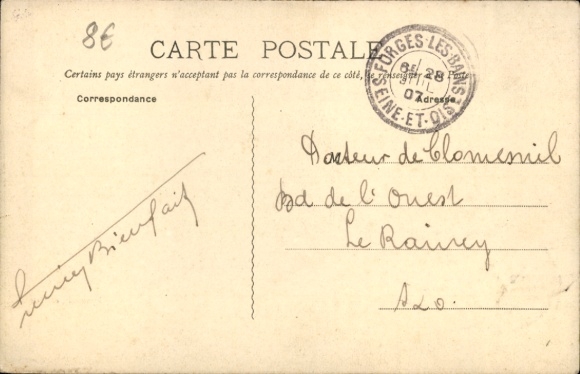 8€
CARTE POSTALE
Certains pays étrangers n'acceptant pas la correspondance de ce côté, se renseigner à la Poste
Correspondance
Adresse
FORGES-LES-BAINS
6E 28
07
SEINE-ET-OISE
Docteur de Clomesnil
Bd de l'Ouest
Le Raincy
Bienfait
S&O.